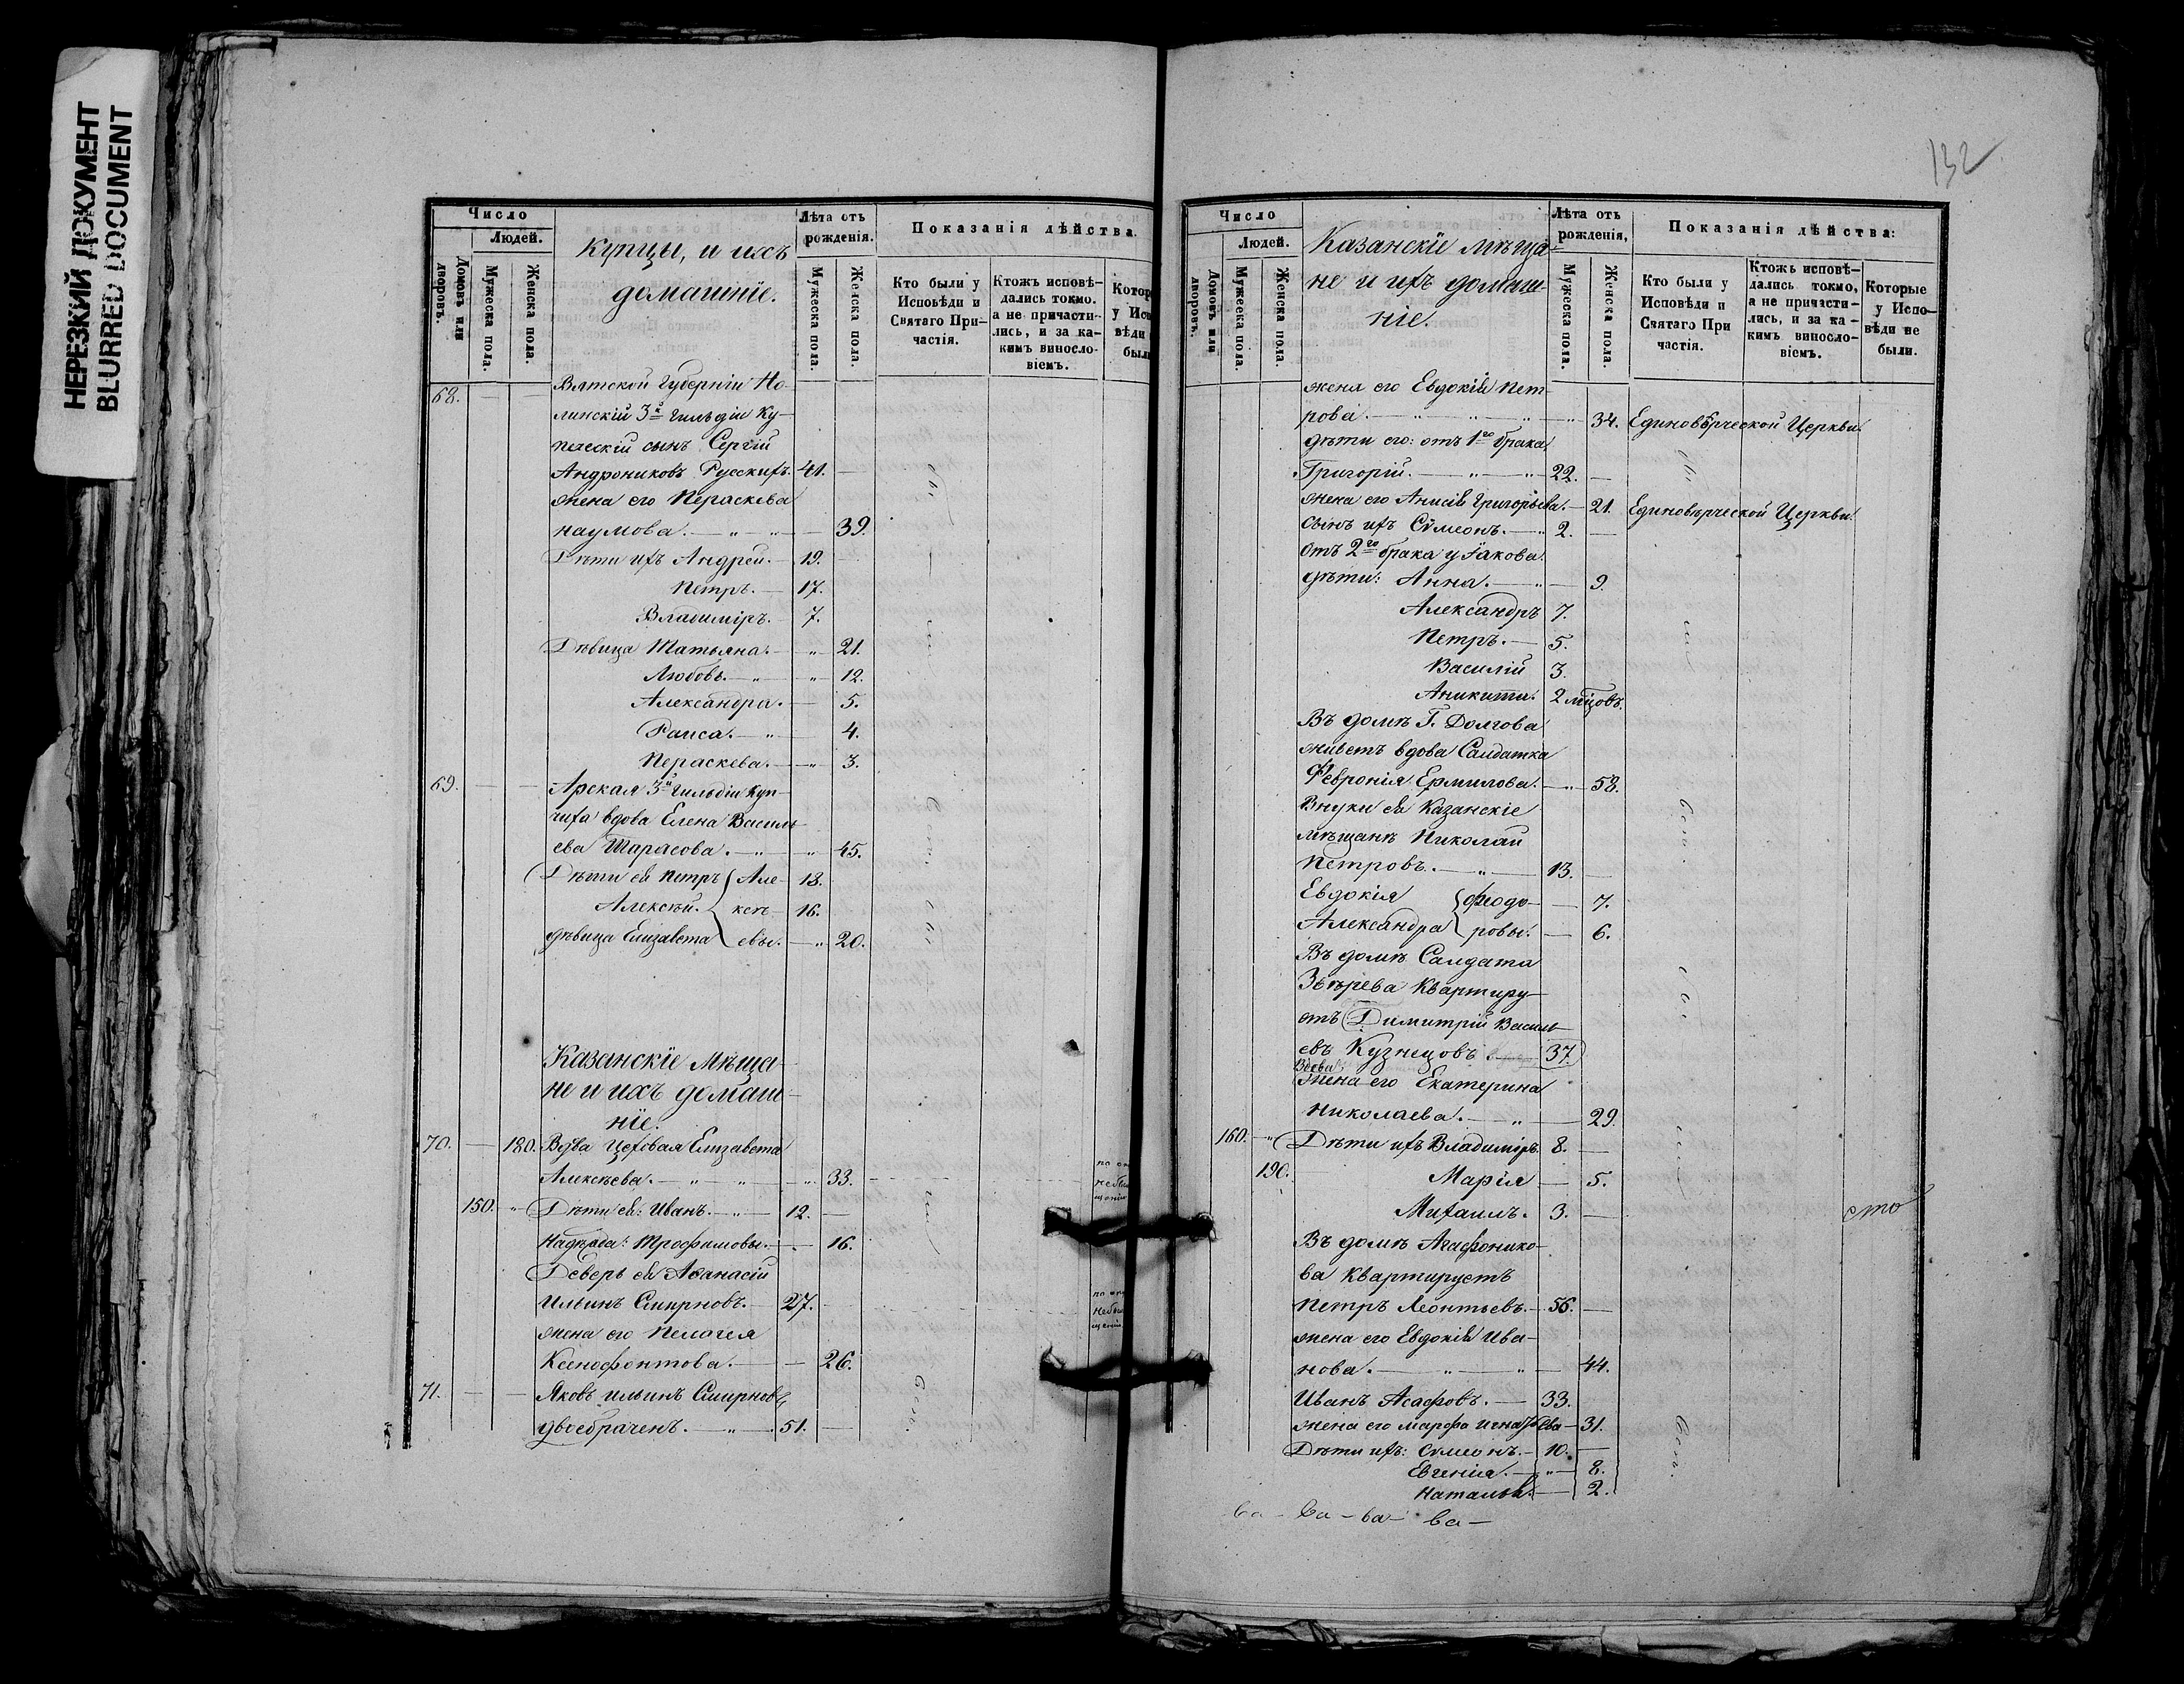 НЕРЕЗКИЙ ДОКУМЕНТ
BLURRED DOCUMENT
Число
Людей.
Домовъ или дворовъ.
Мужеска пола.
Женска пола.
Купцы, и ихъ
домашніе.
Лѣта отъ
рожденія.
Мужеска пола
Женска пола.
Показанія дѣйства
Кто были у
Исповѣди и
Святаго При-
частія.
Ктожъ исповѣ-
дались токмо.
а не причасти-
лись, и за ка-
кимъ виносло-
віемъ.
68. Вятской Губерніи Но-
линскій 3й гильдіи Ку-
пческій сынъ Сергій
Андрониковъ Русскихъ. 41.
жена его Пераскева
Наумова. 39.
Дѣти ихъ Андрей. 19.
Петръ. 17.
Владиміръ. 7.
Дѣвица Татьяна. 21.
Любовь. 12.
Александра. 5.
Раиса. 4.
Пераскева. 3.
69. Арская 3й гильдіи куп-
чиха вдова Елена Василь-
ева Тарасова. 45.
Дѣти ея Петръ Але- 18.
Алексѣй. ксѣ- 16.
дѣвица Елизавета евы. 20.
Казанскіе Мѣща-
не и ихъ домаш-
ніе.
70. 180. Вдва Цеховая Елизавета
Алексѣева. 33.
150. Дѣти ея: Иванъ. 12.
Надѣжда: Трофимовы. 16.
Деверь ея Аѳанасій
Ильинъ Смирновъ. 27.
жена его Пелагея
Ксенофонтова. 26.
71. Яковъ Ильинъ Смирновъ,
двоебраченъ. 51.
132
Число
Людей.
Домовъ или дворовъ.
Мужеска пола.
Женска пола.
Казанскіе мѣща-
не и ихъ домаш-
ніе.
Лѣта отъ
рожденія,
Мужеска пола.
Женска пола.
Показанія дѣйства:
Кто были у
Исповѣди и
Святаго При
частія.
Ктожъ исповѣ-
дались токмо,
а не причасти-
лись, и за ка-
кимъ виносло-
віемъ.
Которые
у Испо-
вѣди не
были.
жена его Евдокія Пет-
рова. 34. Единовѣрческой Церкви.
дѣти его: отъ 1го брака
Григорій. 22.
жена его Анисія Григорьева. 21. Единовѣрческой Церкви.
Сынъ ихъ Сѵмеонъ. 2.
Отъ 2го брака у Іакова
дѣти: Анна. 9.
Александръ 7.
Петръ. 5.
Василій 3.
Аникита. 2 мѣцовъ.
Въ домѣ Г. Долгова
живетъ вдова Салдатка
Февронія Ермилова. 58.
Внуки ея Казанскіе
мѣщанѣ Николай
Петровъ. 13.
Евдокія Феодо- 7.
Александра ровы. 6.
Въ домѣ Салдата
Звѣрева Квартиру-
етъ Димитрій Василь-
евъ Кузнецовъ 37.
Вдова
жена его Екатерина
Николаева. 29.
160. Дѣти ихъ Владиміръ. 8.
190. Марія 5.
Михаилъ. 3.
Въ домѣ Агафонико-
ва Квартируетъ
Петръ Леонтьевъ. 56.
жена его Евдокія Ива-
нова. 44.
Иванъ Асафовъ. 33.
жена его Марфа Игнатьева 31.
Дѣти ихъ: Сѵмеонъ. 10.
Евгенія. 8.
Наталья. 2.
ва - ва - ва - ва -